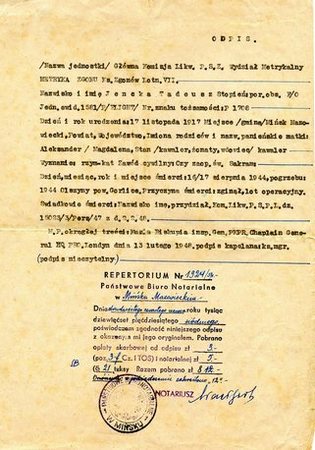 O D P I S.
/Nazwa jednostki/ Główna Komisja Likw. P.S.Z. Wydział Metrykalny
METRYKA ZGONU Ks.Zgonów Lotn.VII.
Nazwisko i imię Jencka Tadeusz Stopień:por.obs. F/O
Jedn.ewid.1581/P/FLIGHT/ Nr.znaku tożsamości:P 1706
Dzień i rok urodzenia:17 listopad 1917 Miejsce /gmina/Mińsk Mazo-
wiecki,Powiat,Województwo,Imiona rodziców i nazw.panieńskie matki:
Aleksander / Magdalena,Stan /kawaler,żonaty,wdowiec/ kawaler
Wyznanie: rzym-kat Zawód cywilny: Czy zaop.św. Sakram:
Dzień,miesiąc,rok i miejsce śmierci:16/17 sierpnia 1944,pogrzeby:
1944 Olszyny pow.Gorlice,Przyczyna śmierci:zginął,lot operacyjny.
Świadkowie śmierci:Nazwisko imę,przydział,Kom.Likw.P.S.P.L.dz.
15023/3/Pers/47 z d.2.2.48.
M.P.okrągłej treści: Kuria Biskupia insp.Gen.PKPR,Chaplain Gene-
ral HQ PRC,Londyn dnia 13 lutego 1948,podpis kapelana:ks.mgr.
(podpis nieczytelny)
REPERTORIUM Nr 1924/
Państwowe Biuro Notarialne
w Mińsku Mazowieckim
Dnia roku tysiąc
dziewięćset pięćdziesiątego siódmego
poświadczam zgodność niniejszego odpisu
z okazanym mi jego oryginałem. Pobrano
opłaty skarbowej od odpisu zł 3.-
(poz. 34 Cz. I TOS) i notarialnej zł 5.-
(§ 21 taksy Razem pobrano zł 8.-
NOTARIUSZ
PAŃSTWOWE BIURO NOTARIALNE
W MIŃSKU